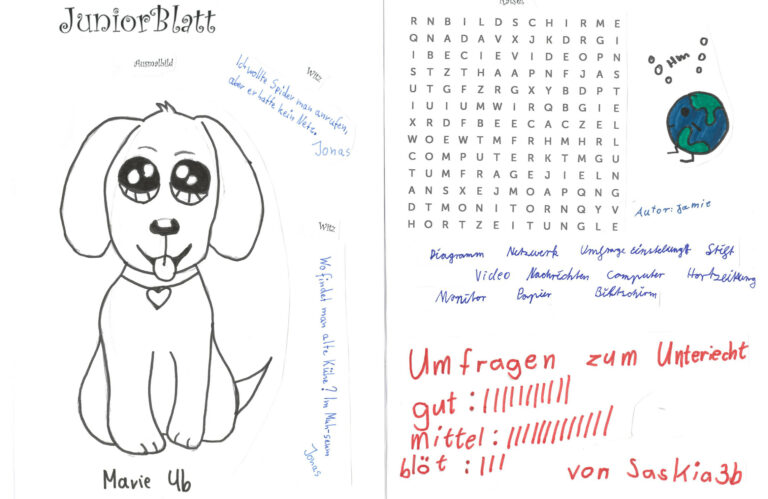 JuniorBlatt
Ausmalbild
Witz
Ich wollte Spiderman anrufen,
aber er hatte kein Netz.
Jonas
Witz
Wo findet man alte Kühe? Im Muh-seum
Jonas
Marie 4b
Rätsel
R N B I L D S C H I R M E
Q N A D A V X J K D R G I
I B E C I E V I D E O P N
S T Z T H A A P N F J A S
U T G F Z R G X Y B D P T
I U I U M W I R Q B G I E
X R D F B E E C A C Z E L
W O E W T M F R H M H R L
C O M P U T E R K T M G U
T U M F R A G E J I E L N
A N S X E J M O A P Q N G
D T M O N I T O R N Q Y V
H O R T Z E I T U N G L E
Hm
Autor: Jamie
Diagramm Netzwerk Umfrage einstellungt Stift
Video Nachrichten Computer Hortzeitung
Monitor Papier Bildschirm
Umfragen zum Unteriecht
gut :
mittel :
blöt :
von Saskia 3b